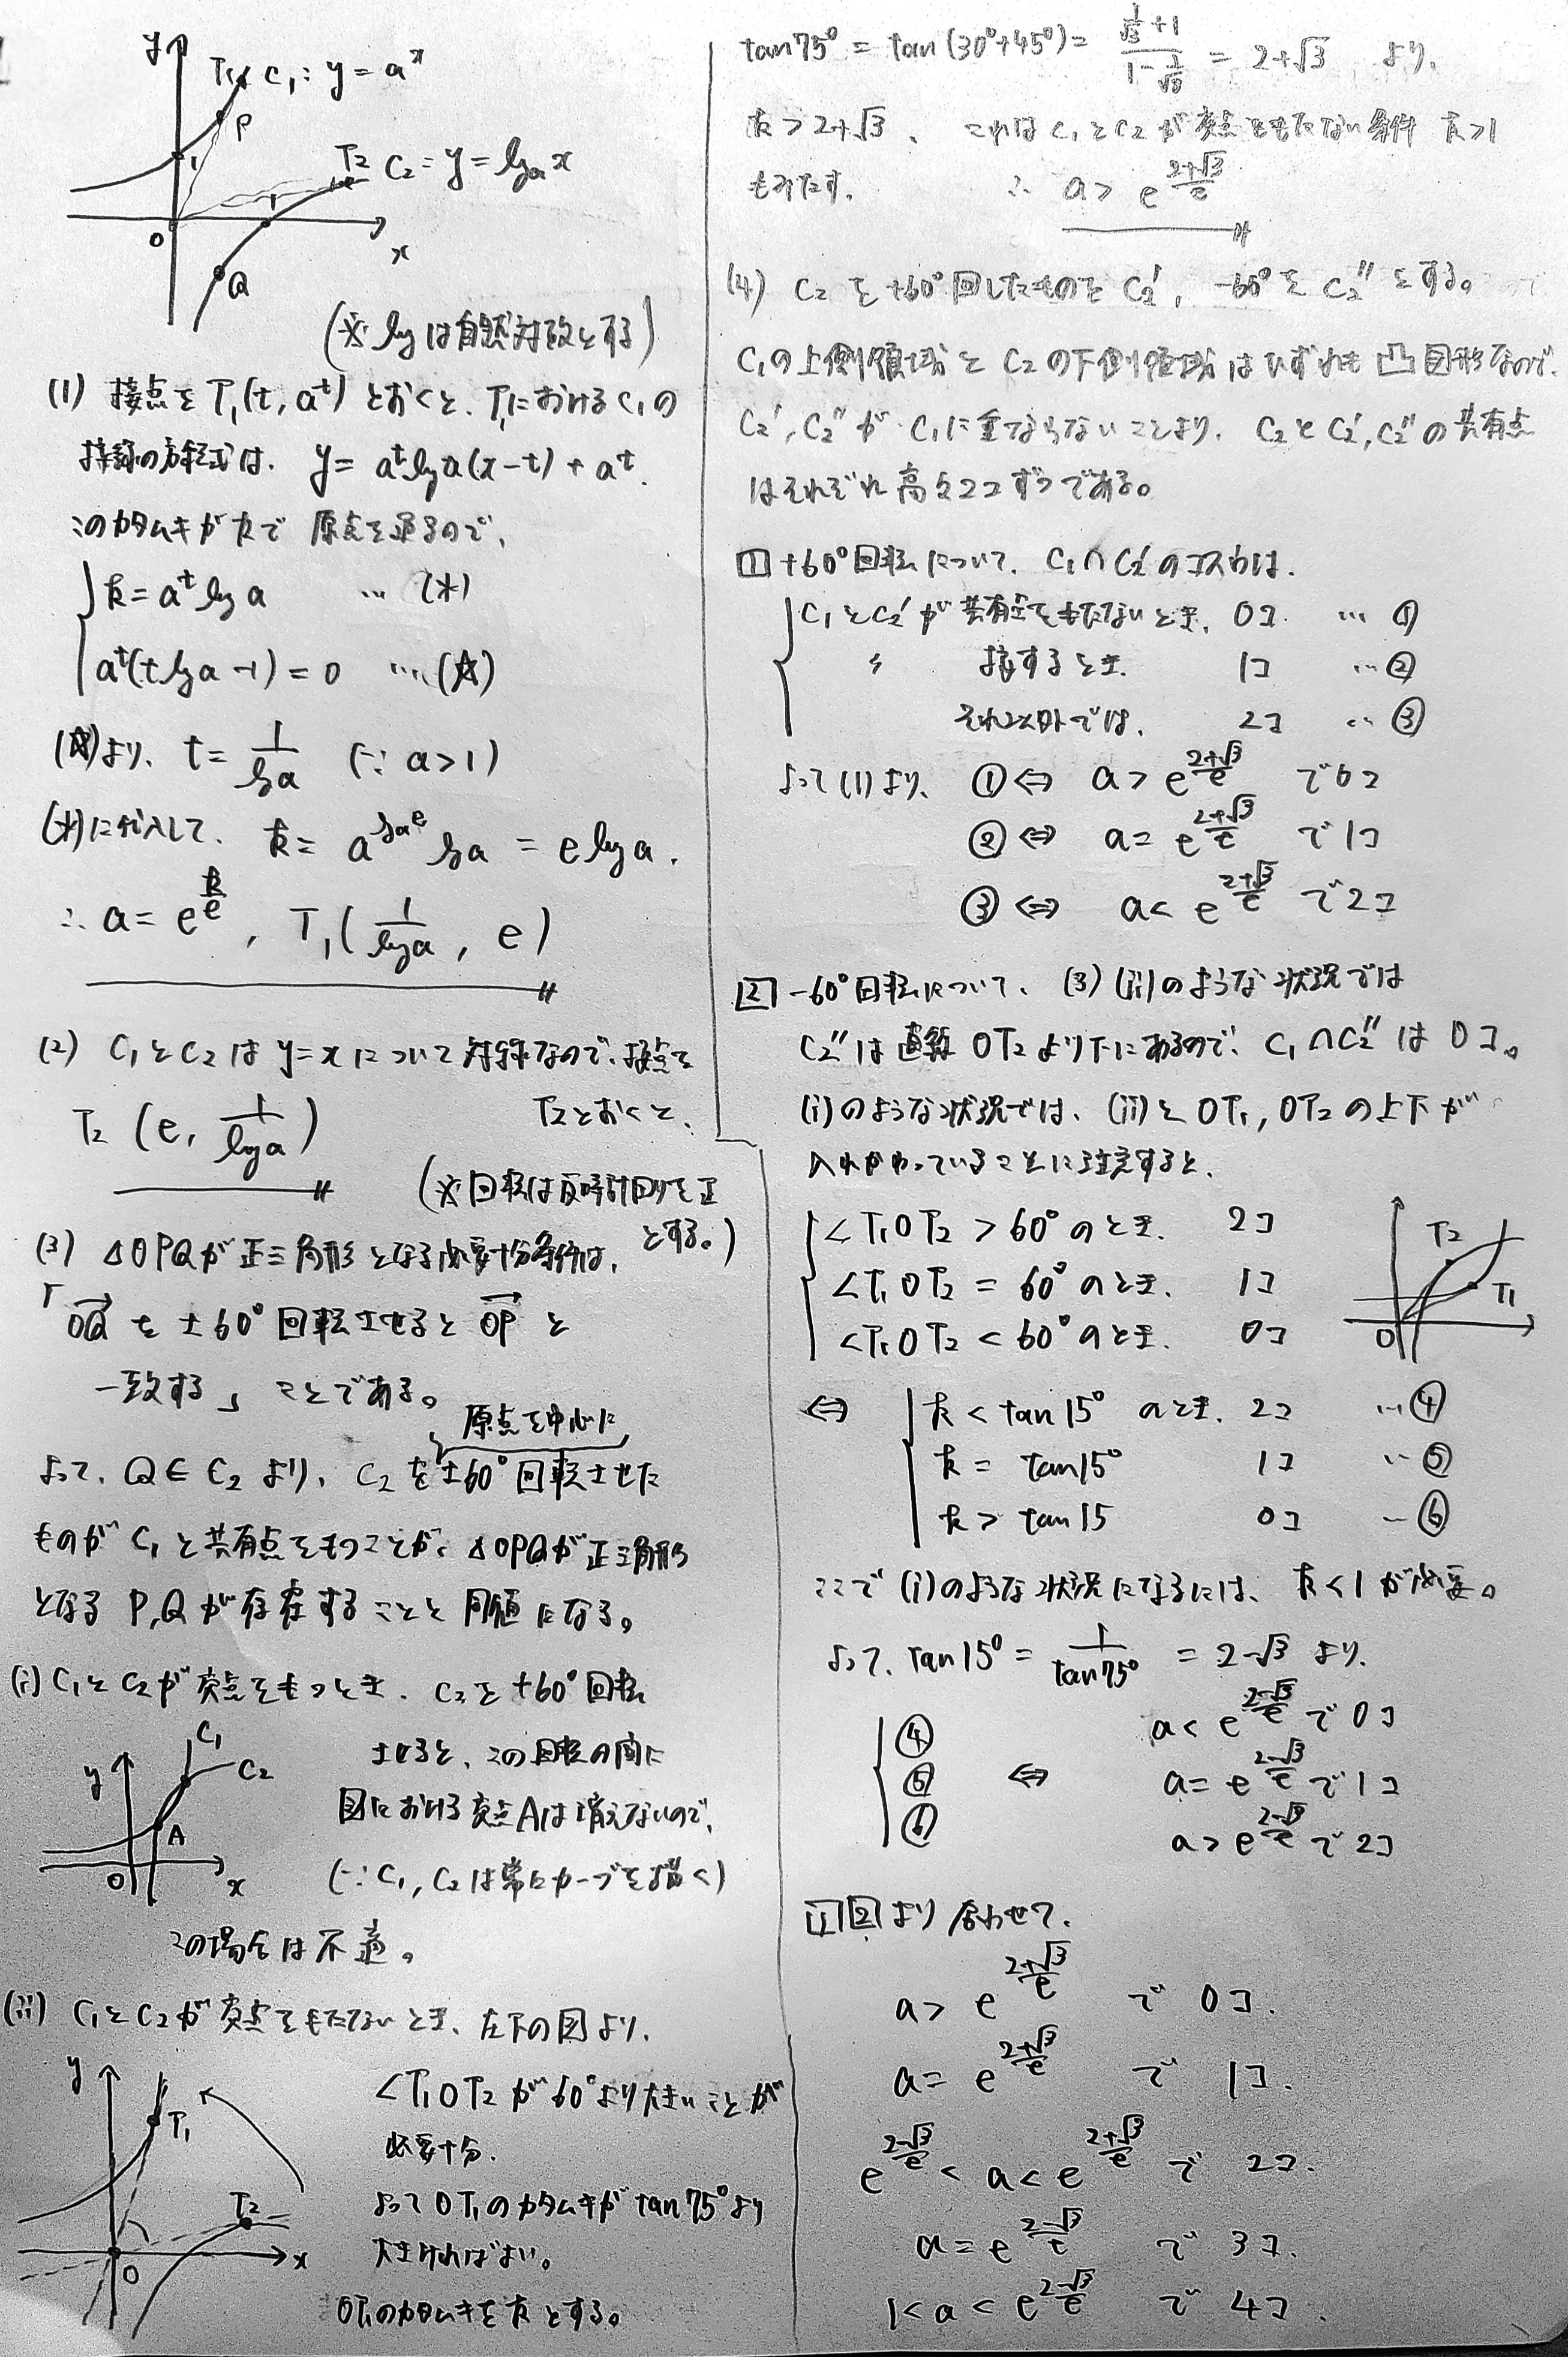 y
T₁ C₁: y = a^x
P
1
T₂ C₂: y = log_a x
1
O
x
Q
(※ log は自然対数とする)
(1) 接点を T₁(t, a^t) とおくと、T₁における C₁の
接線の方程式は、 y = a^t log a (x-t) + a^t.
このカタムキが kで 原点を通るので、
k = a^t log a … (*)
a^t(t log a -1) = 0 …(☆)
(☆)より、 t = 1/log a (∵ a>1)
(*)に代入して、 k = a^{log_a e} log a = e log a.
∴ a = e^{k/e}, T₁(1/log a, e)
(2) C₁とC₂は y=xについて対称なので、接点を
T₂とおくと、
T₂ (e, 1/log a)
(※回転は反時計回りを正
とする。)
(3) △OPQが正三角形となる必要十分条件は、
「OQ→ を ±60°回転させると OP→ と
一致する」 ことである。
原点を中心に
よって、Q∈C₂ より、C₂を±60°回転させた
ものが C₁と共有点をもつことが、△OPQが正三角形
となる P,Qが存在することと 同値になる。
(i) C₁とC₂が交点をもつとき、C₂を+60°回転
させると、この回転の間に
図における交点Aは消えないので、
(∵ C₁, C₂は常にカーブを描く)
この場合は不適。
y
C₁
C₂
A
O
x
(ii) C₁とC₂が交点をもたないとき、左下の図より、
∠T₁OT₂が60°より大きいことが
必要十分.
よって OT₁のカタムキが tan75°より
大きければよい。
OT₁のカタムキを kとする。
y
T₁
T₂
O
x
tan75° = tan(30°+45°) = (1/√3 + 1)/(1 - 1/√3) = 2+√3 より、
k > 2+√3、 これは C₁とC₂が交点をもたない条件 k>1
もみたす。 ∴ a > e^{(2+√3)/e}
(4) C₂を+60°回したものを C₂′, -60°を C₂″とする。
C₁の上側領域と C₂の下側領域はいずれも 凸図形なので、
C₂′, C₂″が C₁に重ならないことより、C₂とC₂′,C₂″の共有点
はそれぞれ高々2コずつである。
1 +60°回転について、 C₁∩C₂′のコスウは、
C₁とC₂′が共有点をもたないとき、 0コ … ①
〃 接するとき、 1コ …②
それ以外では、 2コ … ③
よって(1)より、 ①⇔ a > e^{(2+√3)/e} で0コ
②⇔ a = e^{(2+√3)/e} で1コ
③⇔ a < e^{(2+√3)/e} で2コ
2 -60°回転について、 (3)(ii)のような状況では
C₂″は直線 OT₂より下にあるので、C₁∩C₂″は 0コ。
(i)のような状況では、(ii)と OT₁, OT₂の上下が
入れかわっていることに注意すると、
∠T₁OT₂ > 60°のとき、 2コ
∠T₁OT₂ = 60°のとき、 1コ
∠T₁OT₂ < 60°のとき、 0コ
T₂
T₁
O
⇔ k < tan15° のとき、 2コ …④
k = tan15° 1コ …⑤
k > tan15 0コ …⑥
ここで (i)のような状況になるには、k<1が必要。
よって、tan15° = 1/tan75° = 2-√3 より、
④ a < e^{(2-√3)/e} で 0コ
⑤ ⇔ a = e^{(2-√3)/e} で 1コ
⑥ a > e^{(2-√3)/e} で 2コ
1 2 より 合わせて、
a > e^{(2+√3)/e} で 0コ.
a = e^{(2+√3)/e} で 1コ.
e^{(2-√3)/e} < a < e^{(2+√3)/e} で 2コ.
a = e^{(2-√3)/e} で 3コ.
1 < a < e^{(2-√3)/e} で 4コ.